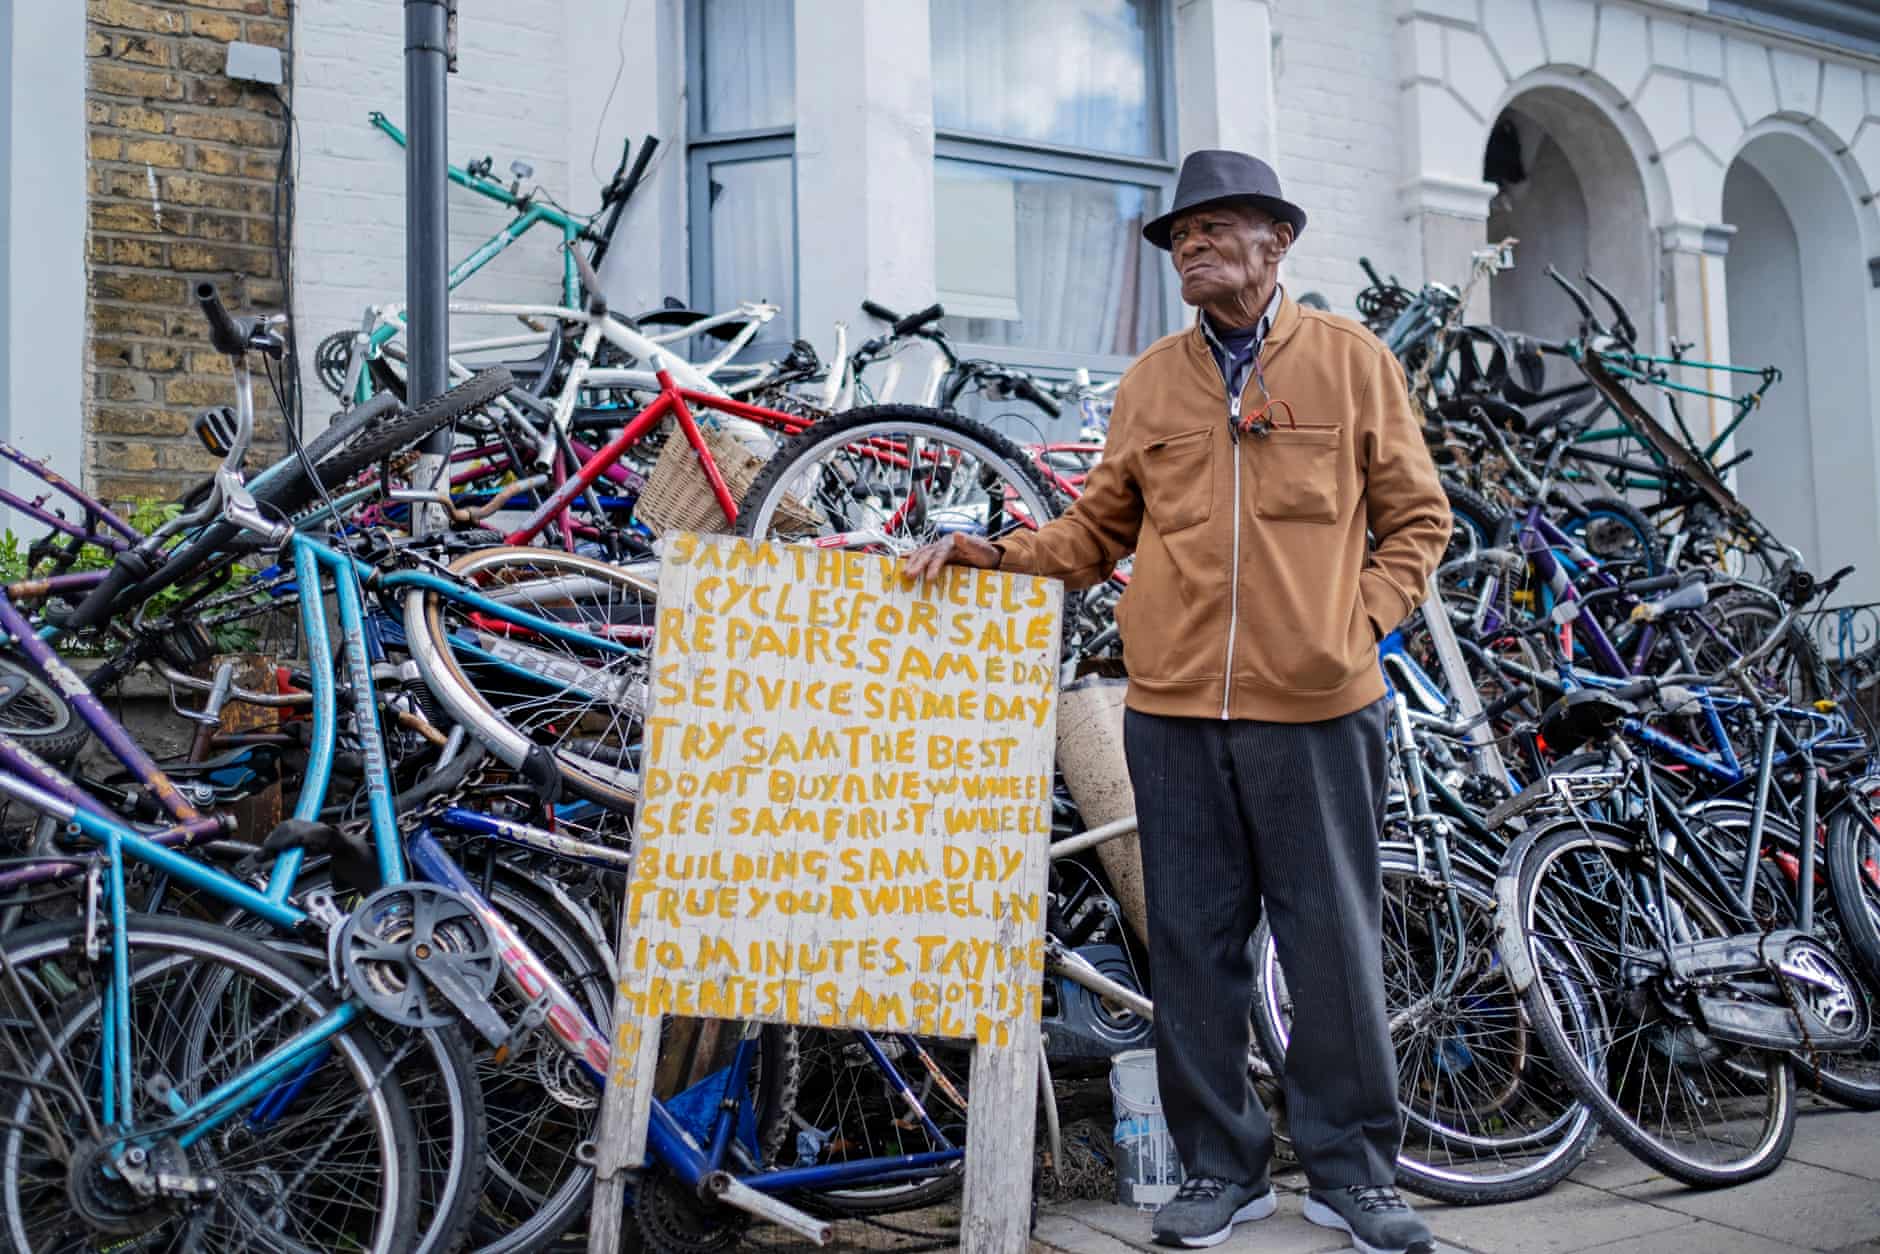 SAM THE WHEELS
CYCLES FOR SALE
REPAIRS SAME DAY
SERVICE SAME DAY
TRY SAM THE BEST
DONT BUY A NEW WHEEL
SEE SAM FIRIST. WHEEL
BUILDING SAM DAY
TRUE YOUR WHEEL IN
10 MINUTES. TRY THE
GREATEST SAM